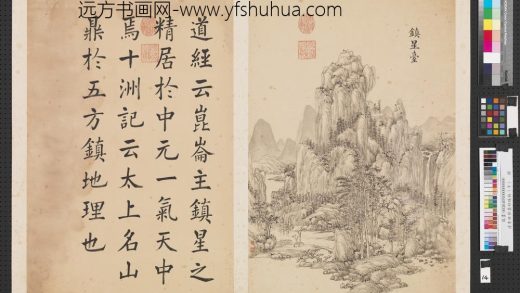 远方书画网--www.yfshuhua.com
道經云崑崙主鎮星之
精居於中元一氣天中
焉十洲記云太上名山
鼎於五方鎮地理也
鎮星臺